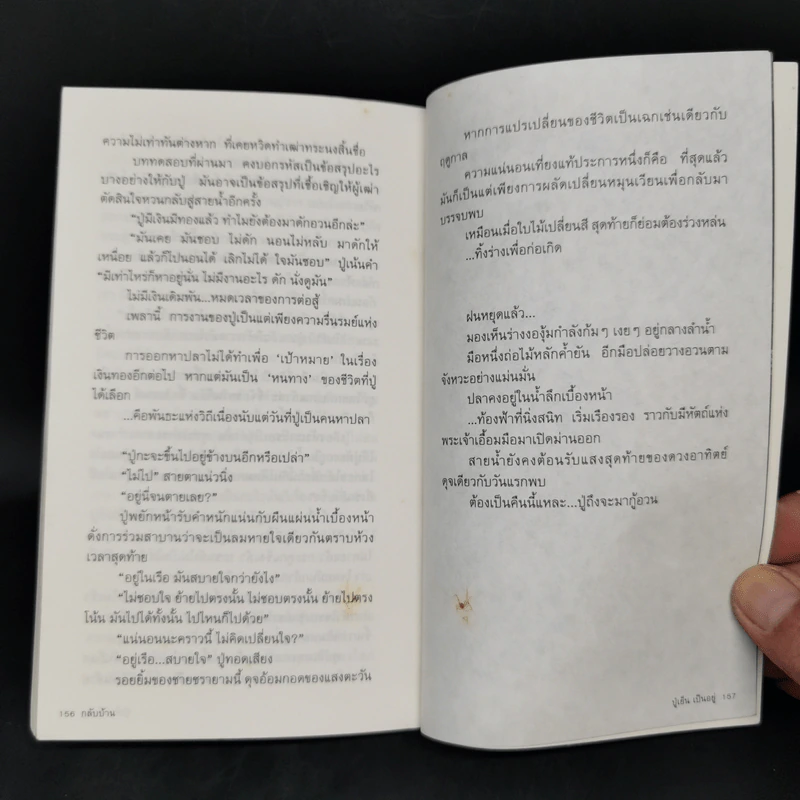 ความไม่เท่าทันต่างหาก ที่เคยหวิดทำเฒ่าทระนงสิ้นชื่อ
บททดสอบที่ผ่านมา คงบอกรหัสเป็นข้อสรุปอะไร
บางอย่างให้กับปู่ มันอาจเป็นข้อสรุปที่เชื้อเชิญให้ผู้เฒ่า
ตัดสินใจหวนกลับสู่สายน้ำอีกครั้ง
“ปู่มีเงินมีทองแล้ว ทำไมยังต้องมาดักอวนอีกล่ะ”
“มันเคย มันชอบ ไม่ดัก นอนไม่หลับ มาดักให้
เหนื่อย แล้วก็ไปนอนได้ เลิกไม่ได้ ใจมันชอบ” ปู่เน้นคำ
“มีเท่าไหร่ก็หาอยู่นั่น ไม่มีงานอะไร ดัก นั่งดูมัน”
ไม่มีเงินเดิมพัน...หมดเวลาของการต่อสู้
เพลานี้ การงานของปู่เป็นแต่เพียงความรื่นรมย์แห่ง
ชีวิต
การออกหาปลาไม่ได้ทำเพื่อ ‘เป้าหมาย’ ในเรื่อง
เงินทองอีกต่อไป หากแต่มันเป็น ‘หนทาง’ ของชีวิตที่ปู่
ได้เลือก
...คือพันธะแห่งวิถีเนื่องนับแต่วันที่ปู่เป็นคนหาปลา
“ปู่กะจะขึ้นไปอยู่ข้างบนอีกหรือเปล่า”
“ไม่ไป” สายตาแน่วนิ่ง
“อยู่นี่จนตายเลย?”
ปู่พยักหน้ารับคำหนักแน่นกับผืนแผ่นน้ำเบื้องหน้า
ดั่งการร่วมสาบานว่าจะเป็นลมหายใจเดียวกันตราบห้วง
เวลาสุดท้าย
“อยู่ในเรือ มันสบายใจกว่ายังไง”
“ไม่ชอบใจ ย้ายไปตรงนั้น ไม่ชอบตรงนั้น ย้ายไปตรง
โน้น มันไปได้ทั้งนั้น ไปไหนก็ไปด้วย”
“แน่นอนนะคราวนี้ ไม่คิดเปลี่ยนใจ?”
“อยู่เรือ...สบายใจ” ปู่ทอดเสียง
รอยยิ้มของชายชรายามนี้ ดุจอ้อมกอดของแสงตะวัน
156 กลับบ้าน
หากการแปรเปลี่ยนของชีวิตเป็นเฉกเช่นเดียวกับ
ฤดูกาล
ความแน่นอนเที่ยงแท้ประการหนึ่งก็คือ ที่สุดแล้ว
มันก็เป็นแต่เพียงการผลัดเปลี่ยนหมุนเวียนเพื่อกลับมา
บรรจบพบ
เหมือนเมื่อใบไม้เปลี่ยนสี สุดท้ายก็ย่อมต้องร่วงหล่น
...ทิ้งร่างเพื่อก่อเกิด
ฝนหยุดแล้ว...
มองเห็นร่างงองุ้มกำลังก้มๆ เงยๆ อยู่กลางลำน้ำ
มือหนึ่งถ่อไม้หลักค้ำยัน อีกมือปล่อยวางอวนตาม
จังหวะอย่างแม่นมั่น
ปลาคงอยู่ในน้ำลึกเบื้องหน้า
...ท้องฟ้าที่นิ่งสนิท เริ่มเรืองรอง ราวกับมีหัตถ์แห่ง
พระเจ้าเอื้อมมือมาเปิดม่านออก
สายน้ำยังคงต้อนรับแสงสุดท้ายของดวงอาทิตย์
ดุจเดียวกับวันแรกพบ
ต้องเป็นคืนนี้แหละ...ปู่ถึงจะมากู้อวน
ปู่เย็น เป็นอยู่ 157